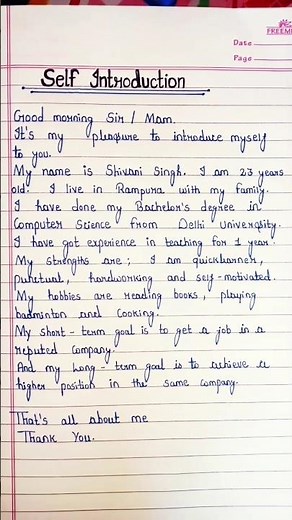 FREEM
Date
Page
Self Introduction
Good morning Sir / Mam.
It's my pleasure to introduce myself
to you.
My name is Shivani Singh. I am 23 years
old. I live in Rampura with my family.
I have done my Bachelor's degree in
Computer Science from Delhi University.
I have got experience in teaching for 1 year.
My strengths are ; I am quicklearner,
punctual, hardworking and self-motivated.
My hobbies are reading books, playing
badminton and cooking.
My short-term goal is to get a job in a
reputed company.
And my Long-term goal is to achieve a
higher position in the same company.
That's all about me
Thank You.